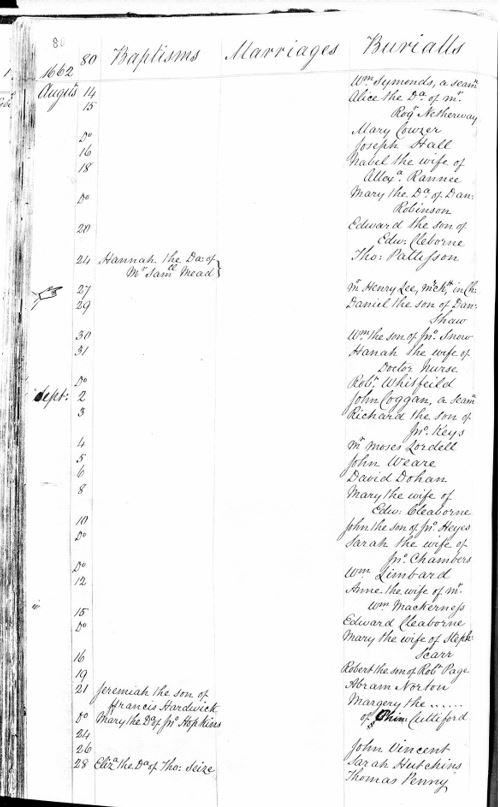 80
80 Baptisms Marriages Burialls
1662
Wm Symonds, a seam
August 14 Alice the Da. of Mr.
15 Rogr Netherway
Do Mary Cowzer
16 Joseph Hall
18 Nabel the wife of
Allexa. Rannee
Do Mary the Da. of Dan:
Robinson
20 Edward the son of
Edw: Cleborne
24 Hannah the Da: of Tho: Pattesson
Mr Samll Mead}
27 Mr Henry Lee, in Ch:
29 Daniel the son of Dan:
Shaw
30 Wm the son of Jno. Snow
31 Hanah the wife of
Doctor Nurse
Do Robt. Whitfeild
Sept: 2 John Coggan, a seam
3 Richard the son of
Jno. Keys
4 Mr Moses Lordell
5 John Weare
6 David Dohan
8 Mary the wife of
Edw: Cleaborne
10 John the son of Jno Heyes
Do Sarah the wife of
Jno. Chambers
Do Wm Limbard
12 Anne the wife of Mr.
Wm Mackerness
15 Edward Cleaborne
Do Mary the wife of Steph:
Scarr
16 Robert the son of Robt Page
19 Abram Norton
21 Jeremiah the son of Margery the ......
Francis Hardwick
Do Mary the Da of Jno Hopkins of Culliford
24
26 John Vincent
28 Eliza the Da of Tho: Seize Sarah Hutchins
Thomas Penny